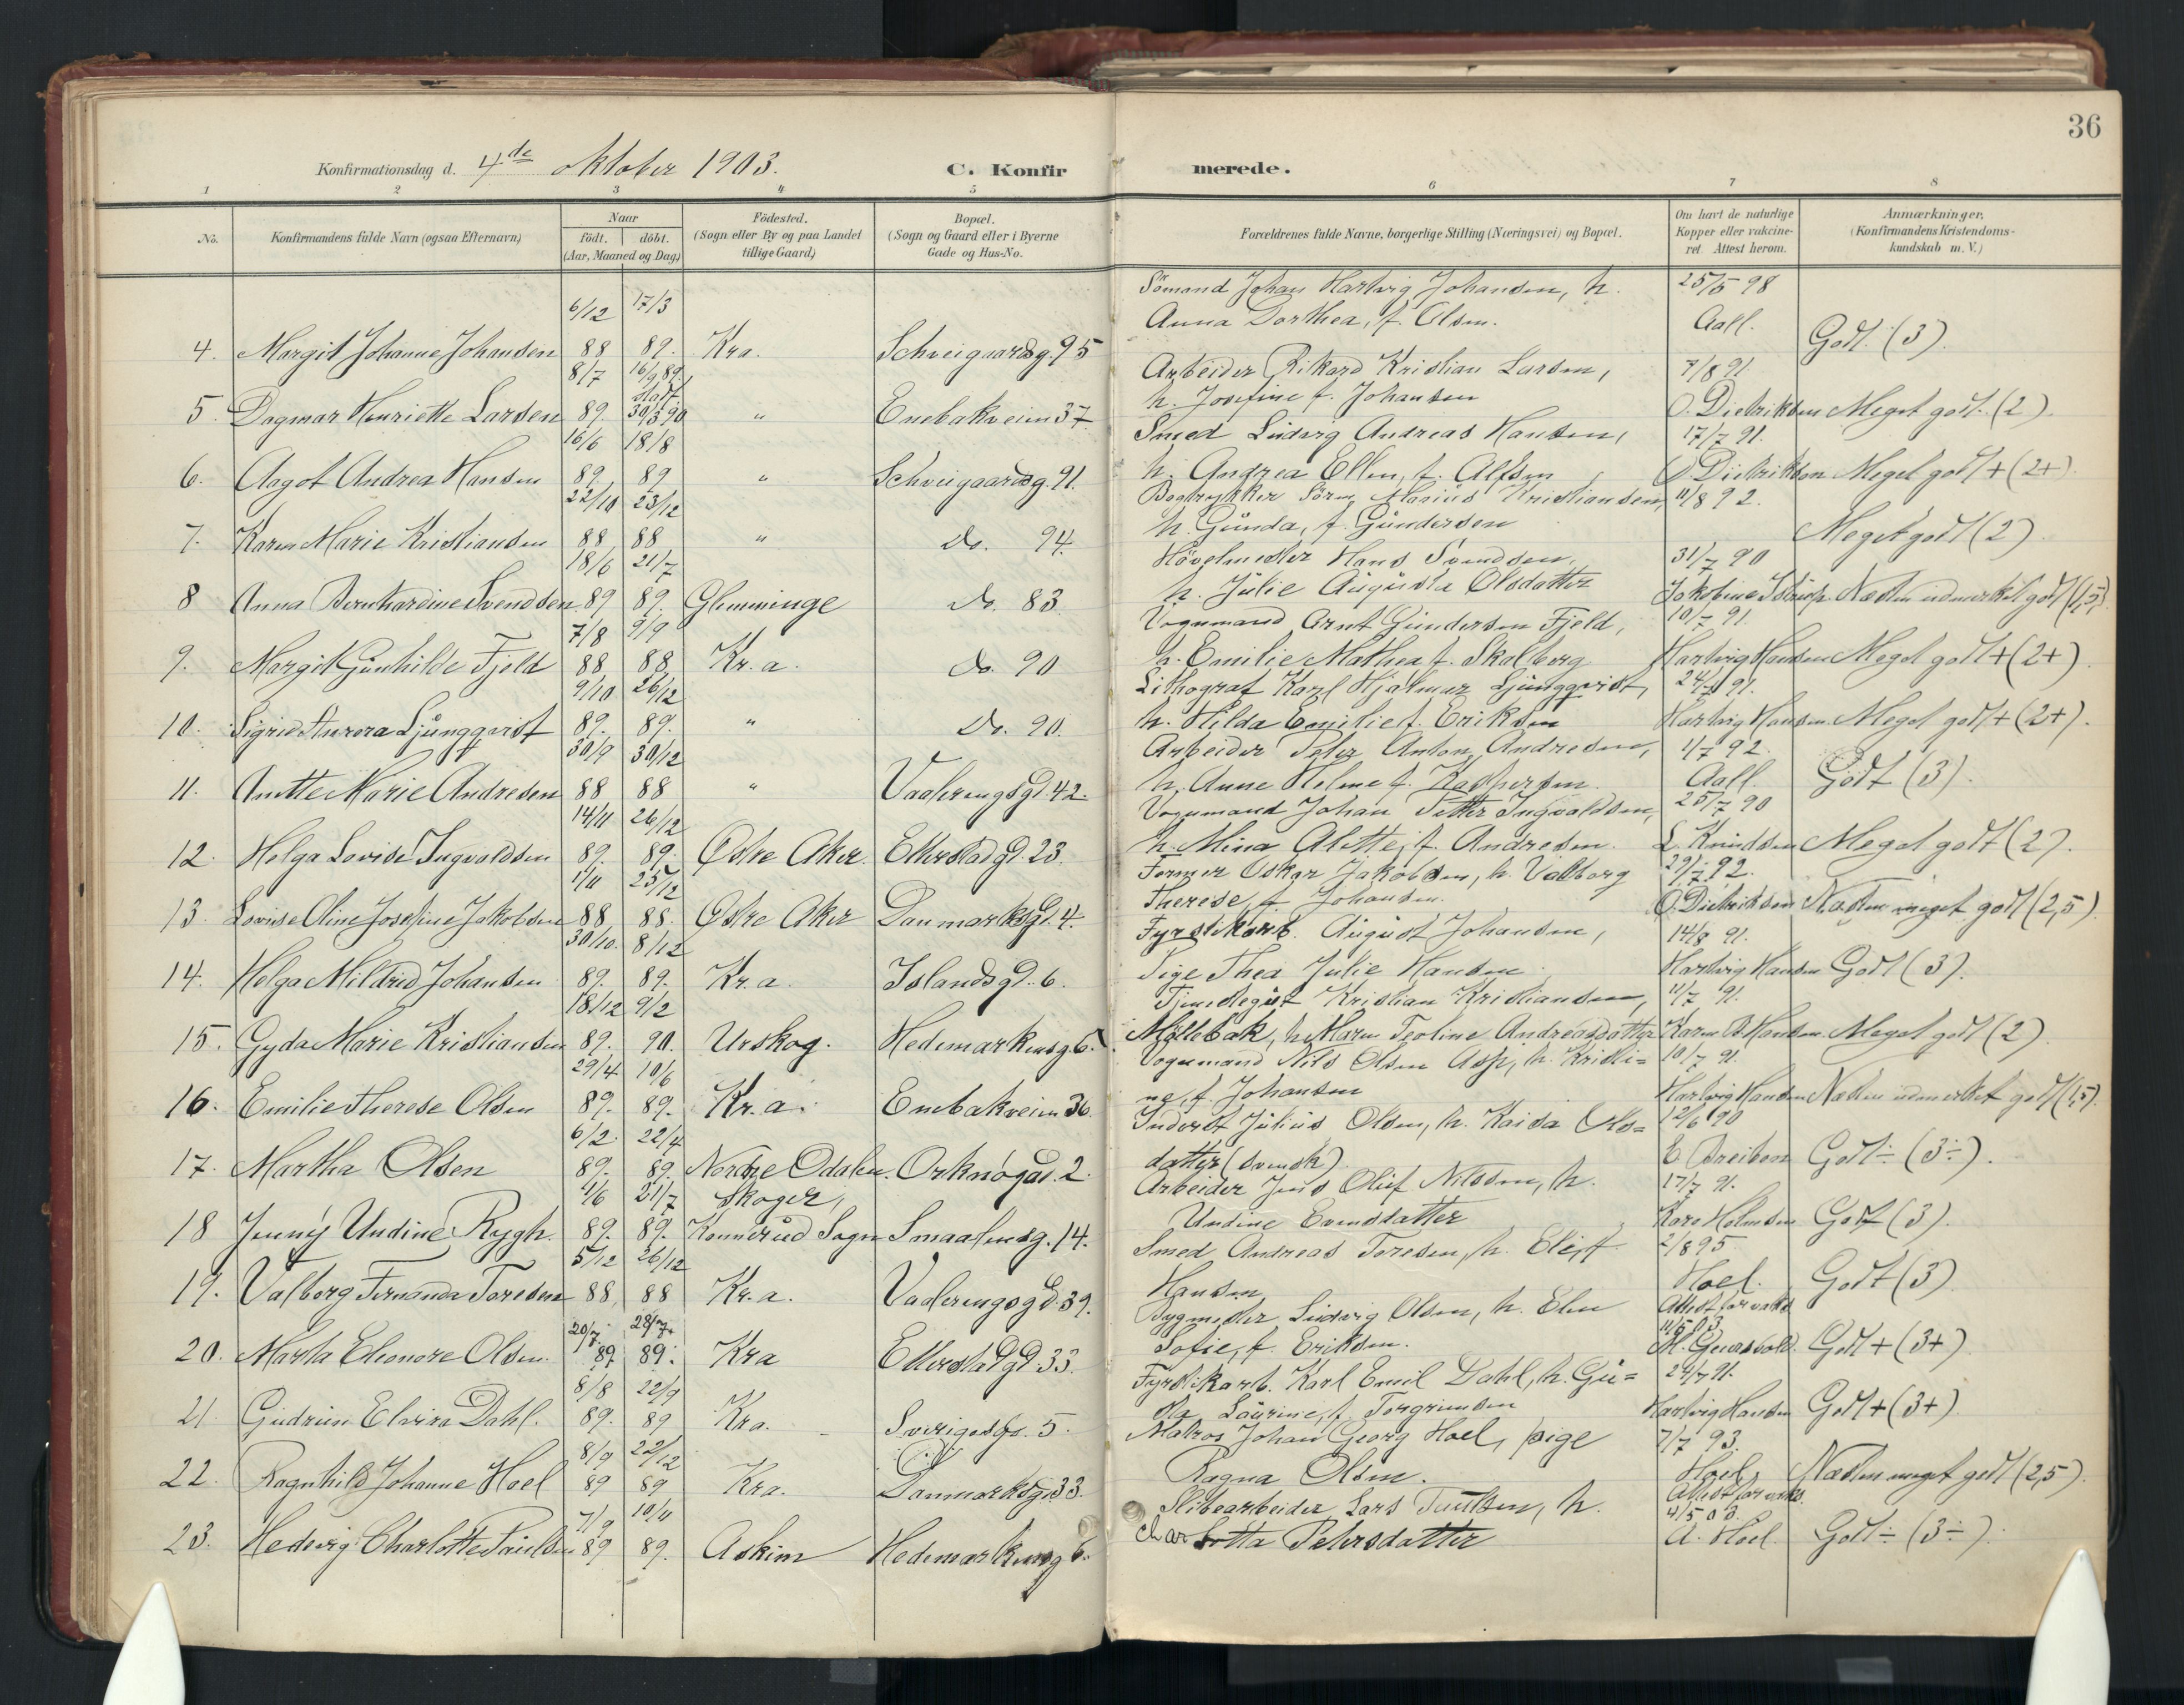 36
Konfirmationsdag d. 4de oktober 1903. C. Konfirmerede.
1 2 3 4 5 6 7 8
No. Konfirmandens fulde Navn (ogsaa Efternavn) Naar født. døbt. (Aar, Maaned og Dag) Fødested. (Sogn eller By og paa Landet tillige Gaard) Bopæl. (Sogn og Gaard eller i Byerne Gade og Hus-No. Forældrenes fulde Navne, borgerlige Stilling (Næringsvei) og Bopæl. Om havt de naturlige Kopper eller vakcineret. Attest herom. Anmærkninger. (Konfirmandens Kristendomskundskab m. V.)
4. Margit Johanne Johansen 6/12 88 17/3 89. Kra. Schweigaardsg. 95 Sömand Johan Hartvig Johansen, h. Anna Dorthea, f. Olsen. 25/5 98 Aall. Godt. (3).
5. Dagmar Henriette Larsen 8/7 89. 16/9 89. stadf. 30/3 90 " Enebakveien 37 Arbeider Rikard Kristian Larsen, h. Josefine f. Johansen 7/8 91. O. Dietrikson Meget godt. (2).
6. Aagot Andrea Hansen 16/6 89. 18/8 89 " Schweigaardsg. 91. Smed Ludvig Andreas Hansen, h. Andrea Ellen, f. Alfsen 17/7 91. O Dietrikson Meget godt + (2+)
7. Karen Marie Kristiansen 22/10 88 23/12 88 " do. 94. Bogtrykker Sören Marius Kristiansen, h. Gunda, f. Gundersen 11/8 92. Meget godt (2)
8 Anna Bernhardine Svendsen 18/6 89 21/7 89. Glemminge do. 83 Hövelmester Hans Svendsen, h. Julie Augusta Olsdatter 31/7 90 Jakobine Næsten udmerket godt (1,5)
9. Margit Gunhilde Fjeld 7/8 88 9/9 88. Kr.a. do. 90 Vognmand Arnt Gundersen Fjeld, h. Emilie Mathea f. Skalberg 10/7 91. Hartvig Hansen Meget godt + (2+).
10. Sigrid Aurora Ljungqvist 9/10 89. 26/12 89. " do. 90. Lithograf Karl Hjalmar Ljungqvist, h. Hilda Emilie f. Eriksen 24/7 91. Hartvig Hansen Meget godt + (2+).
11. Anette Marie Andresen 30/9 88 30/12 88 " Vaalerengsgd. 42. Arbeider Peter Anton Andresen, h. Anne Helene f. Kaspersen 1/7 92. Aall. Godt (3).
12. Helga Lovise Ingvaldsen 14/11 89. 26/12 89. Östre Aker. Etterstadgd. 23. Vognmand Johan Petter Ingvaldsen, h. Mina Alette, f. Andresen. 25/7 90 L. Knudsen Meget godt (2).
13. Lovise Oline Josefine Jakobsen 1/11 88 25/12 88. Östre Aker Danmarksgd. 4. Former Oskar Jakobsen, h. Valborg Therese, f. Johansen. 29/7 92. O. Dietrikson Næsten meget godt (2,5)
14. Helga Mildred Johansen 30/10. 89. 8/12 89. Kr.a. Islandsgd. 6. Fyrstikarb. August Johansen, Pige Thea Julie Hansen. 14/8 91. Hartvig Hansen Godt (3).
15. Gyda Marie Kristiansen 18/12 89. 9/2 90. Urskog. Hedemarkensg 6. Tjenestegut Kristian Kristiansen, Möllebak, h. Maren Teoline Andreasdatter 11/7 91. Karen B. Hansen. Meget godt (2)
16. Emilie Therese Olsen 29/4 89. 10/6 89. Kr.a. Enebakveien 36. Vognmand Nils Olsen Asp, h. Kristi=ne, f. Johansen 10/7 91. Hartvig Hansen Næsten udmerket godt (1,5).
17. Martha Olsen 6/2. 89. 22/4 89. Nordre Odalen. Orknøgad. 2. Inderst Julius Olsen, h. Kaisa Ols=datter (svensk) 12/6 90 E Breibon Godt ÷ (3÷).
18 Jenny Undine Rygh. 4/6 89. 21/7 89. Skoger, Konnerud Sogn Smaalensg. 14. Arbeider Jens Oluf Nilssen, h. Undine Evensdatter 17/7 91. Karo Holmsen Godt (3).
19. Valborg Fernanda Toresen 5/12 88. 26/12 88 Kr.a. Vaalerengsgd. 39. Smed Andreas Toresen, h. Elise f. Hansen 2/8 95 Hoel. Godt (3)
20. Marta Eleonore Olsen. 20/7. 89 28/7. 89. Kra Etterstadgd. 33. Bygmester Ludvig Olsen, h. Elen Sofie, f. Eriksen. Attest for vakc. 11/5 03 Godt + (3+)
21. Gudrun Elvira Dahl. 8/8 89. 22/9 89 Kra. Sverigesg. 5. Fyrstikarb. Karl Emil Dahl, h. Gu=sta Laurine, f. Torgrimsen 24/7 91. Hartvig Hansen Godt + (3+)
22. Ragnhild Johanne Hoel 8/9 89 22/12 89 Kra. Danmarksgd. 33. Matros Johan Georg Hoel, pige Ragna Olsen. 7/7 93. Hoel, Næsten meget godt (2,5).
23. Hedevig Charlotte Paulsen 7/9 89 10/11 89. Askim Hedemarkensg 6. Slibearbeider Lars Paulsen, h. Charlotta Pehrsdatter Attest for vakc. 4/5 03. A. Hoel Godt ÷ (3÷).